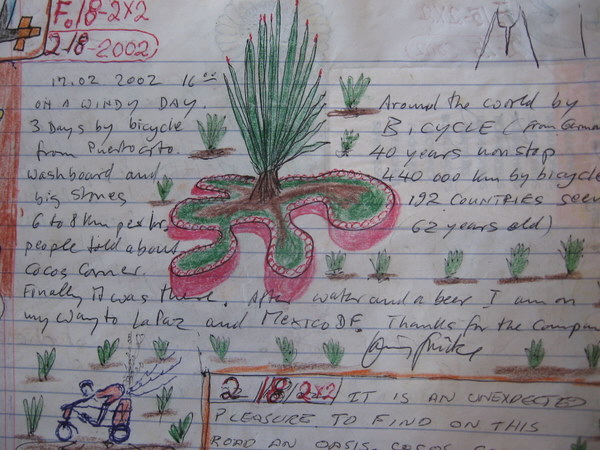 F. 18-2x2
2-18-2002
17.02 2002 16
ON A WINDY DAY.
3 Days by bicycle
from Puertocito.
washboard and
big stones
6 to 8 km per hrs
people told about
cocos corner.
Finally it was there. After water and a beer I am on
my way to La Paz and MEXICO DF. Thanks for the Compan
Around the world by
BICYCLE (from German
40 years nonstop
440 000 km by bicycle
192 COUNTRIES seen
62 years old)
2 18/2x2 IT IS AN UNEXPECTED
PLEASURE TO FIND ON THIS
ROAD AN OASIS. COCOS CO